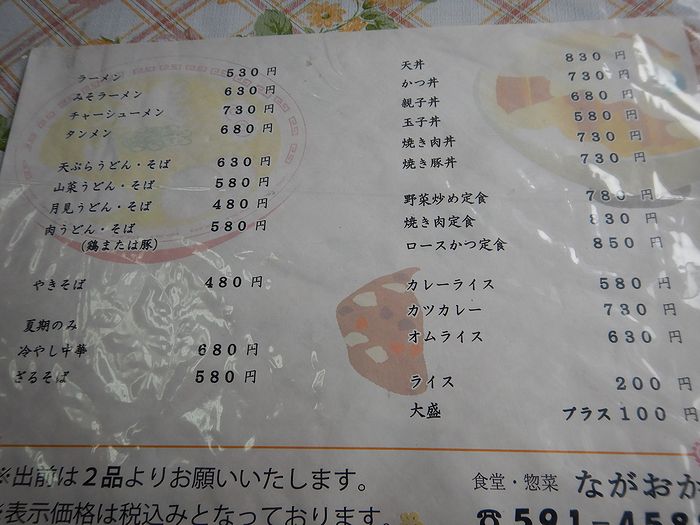 ラーメン 530 円
みそラーメン 630 円
チャーシューメン 730 円
タンメン 680 円
天ぷらうどん・そば 630 円
山菜うどん・そば 580 円
月見うどん・そば 480 円
肉うどん・そば 580 円
(鶏または豚)
やきそば 480 円
夏期のみ
冷やし中華 680 円
ざるそば 580 円
天丼 830 円
かつ丼 730 円
親子丼 680 円
玉子丼 580 円
焼き肉丼 730 円
焼き豚丼 730 円
野菜炒め定食 780 円
焼き肉定食 830 円
ロースかつ定食 850 円
カレーライス 580 円
カツカレー 730 円
オムライス 630 円
ライス 200 円
大盛 プラス100 円
※出前は２品よりお願いいたします。
※表示価格は税込みとなっております。
食堂・惣菜 ながおか
☎591-458